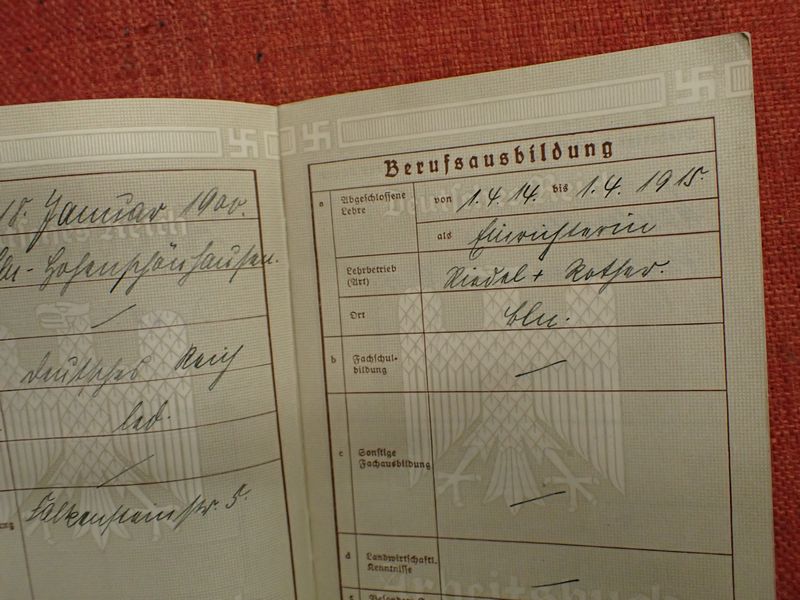 18. Januar 1900.
Bln - Hohenschönhausen.
Deutsches Reich
led.
Falkensteinstr. 5.
Berufsausbildung
a Abgeschlossene Lehre
von 1.4.14. bis 1.4.1915.
als Einrichterin
Lehrbetrieb (Art)
Riedel + Rother.
Ort Bln.
b Fachschul-
bildung
c Sonstige
Fachausbildung
d Landwirtschaftl.
Kenntnisse
Arbeitsbuch